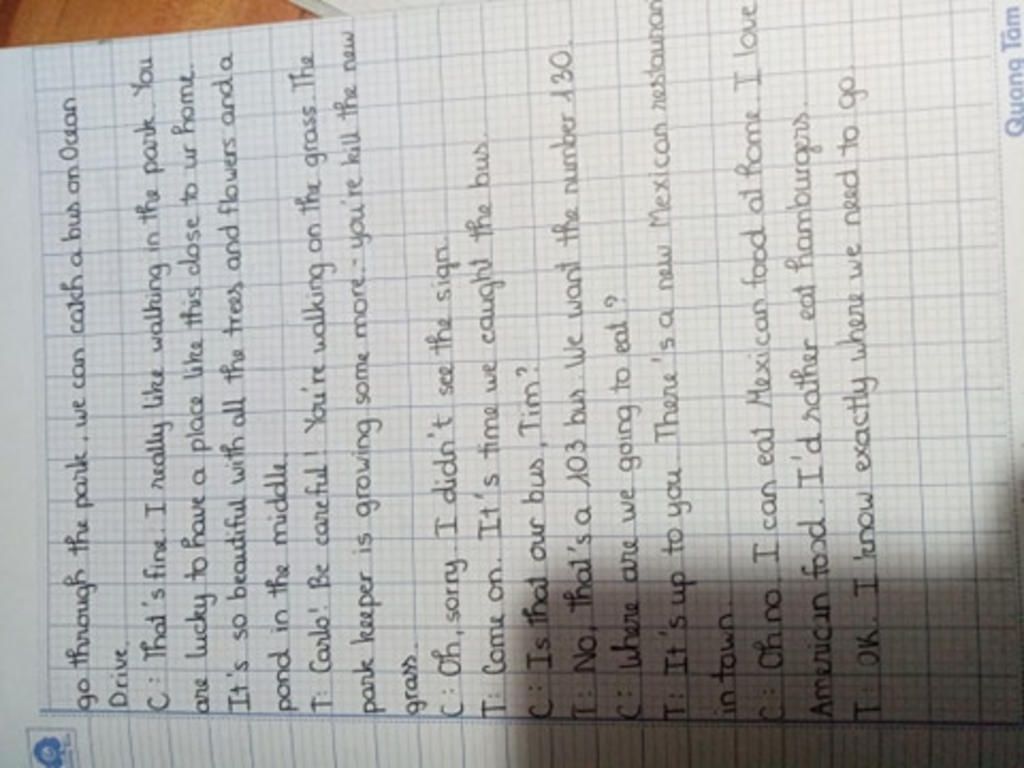 go through the park, we can catch a bus on Ocean
Drive.
C: That's fine. I really like walking in the park. You
are lucky to have a place like this close to ur home.
It's so beautiful with all the trees and flowers and a
pond in the middle.
T: Carlo! Be careful! You're walking on the grass. The
park keeper is growing some more - you're kill the new
grass.
C: Oh, sorry. I didn't see the sign.
T: Come on. It's time we caught the bus.
C: Is that our bus, Tim?
T: No, that's a 103 bus. We want the number 130.
C: Where are we going to eat?
T: It's up to you. There's a new Mexican restauran
in town.
C: Oh no. I can eat Mexican food at home. I love
American food. I'd rather eat hamburgers.
T: OK. I know exactly where we need to go.
Quang Tâm